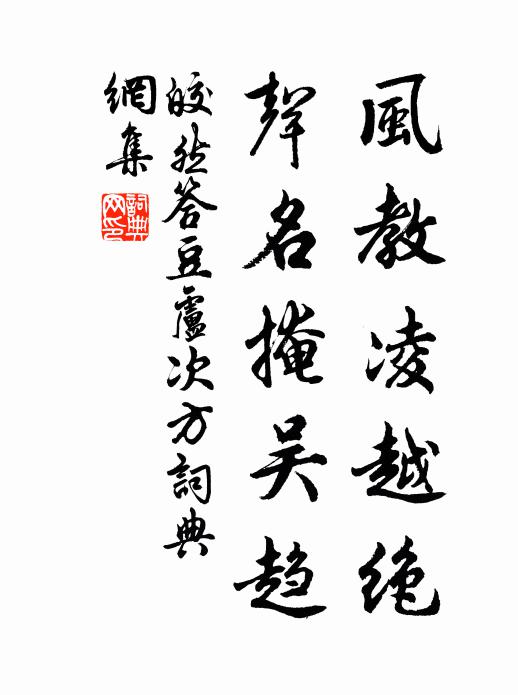 風教凌越絶
聲名掩吴趋
皎然答豆盧次方詞典
網集
詞典
网印